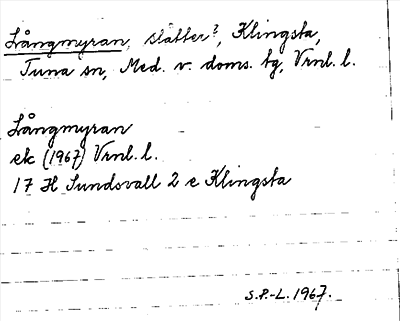 Långmyran, slåtter?, Klingsta,
Tuna sn, Med. v. doms. tg, Vrnl. l.
Långmyran
ek (1967) Vrnl. l.
17 H Sundsvall 2 e Klingsta
S.P.-L. 1967.